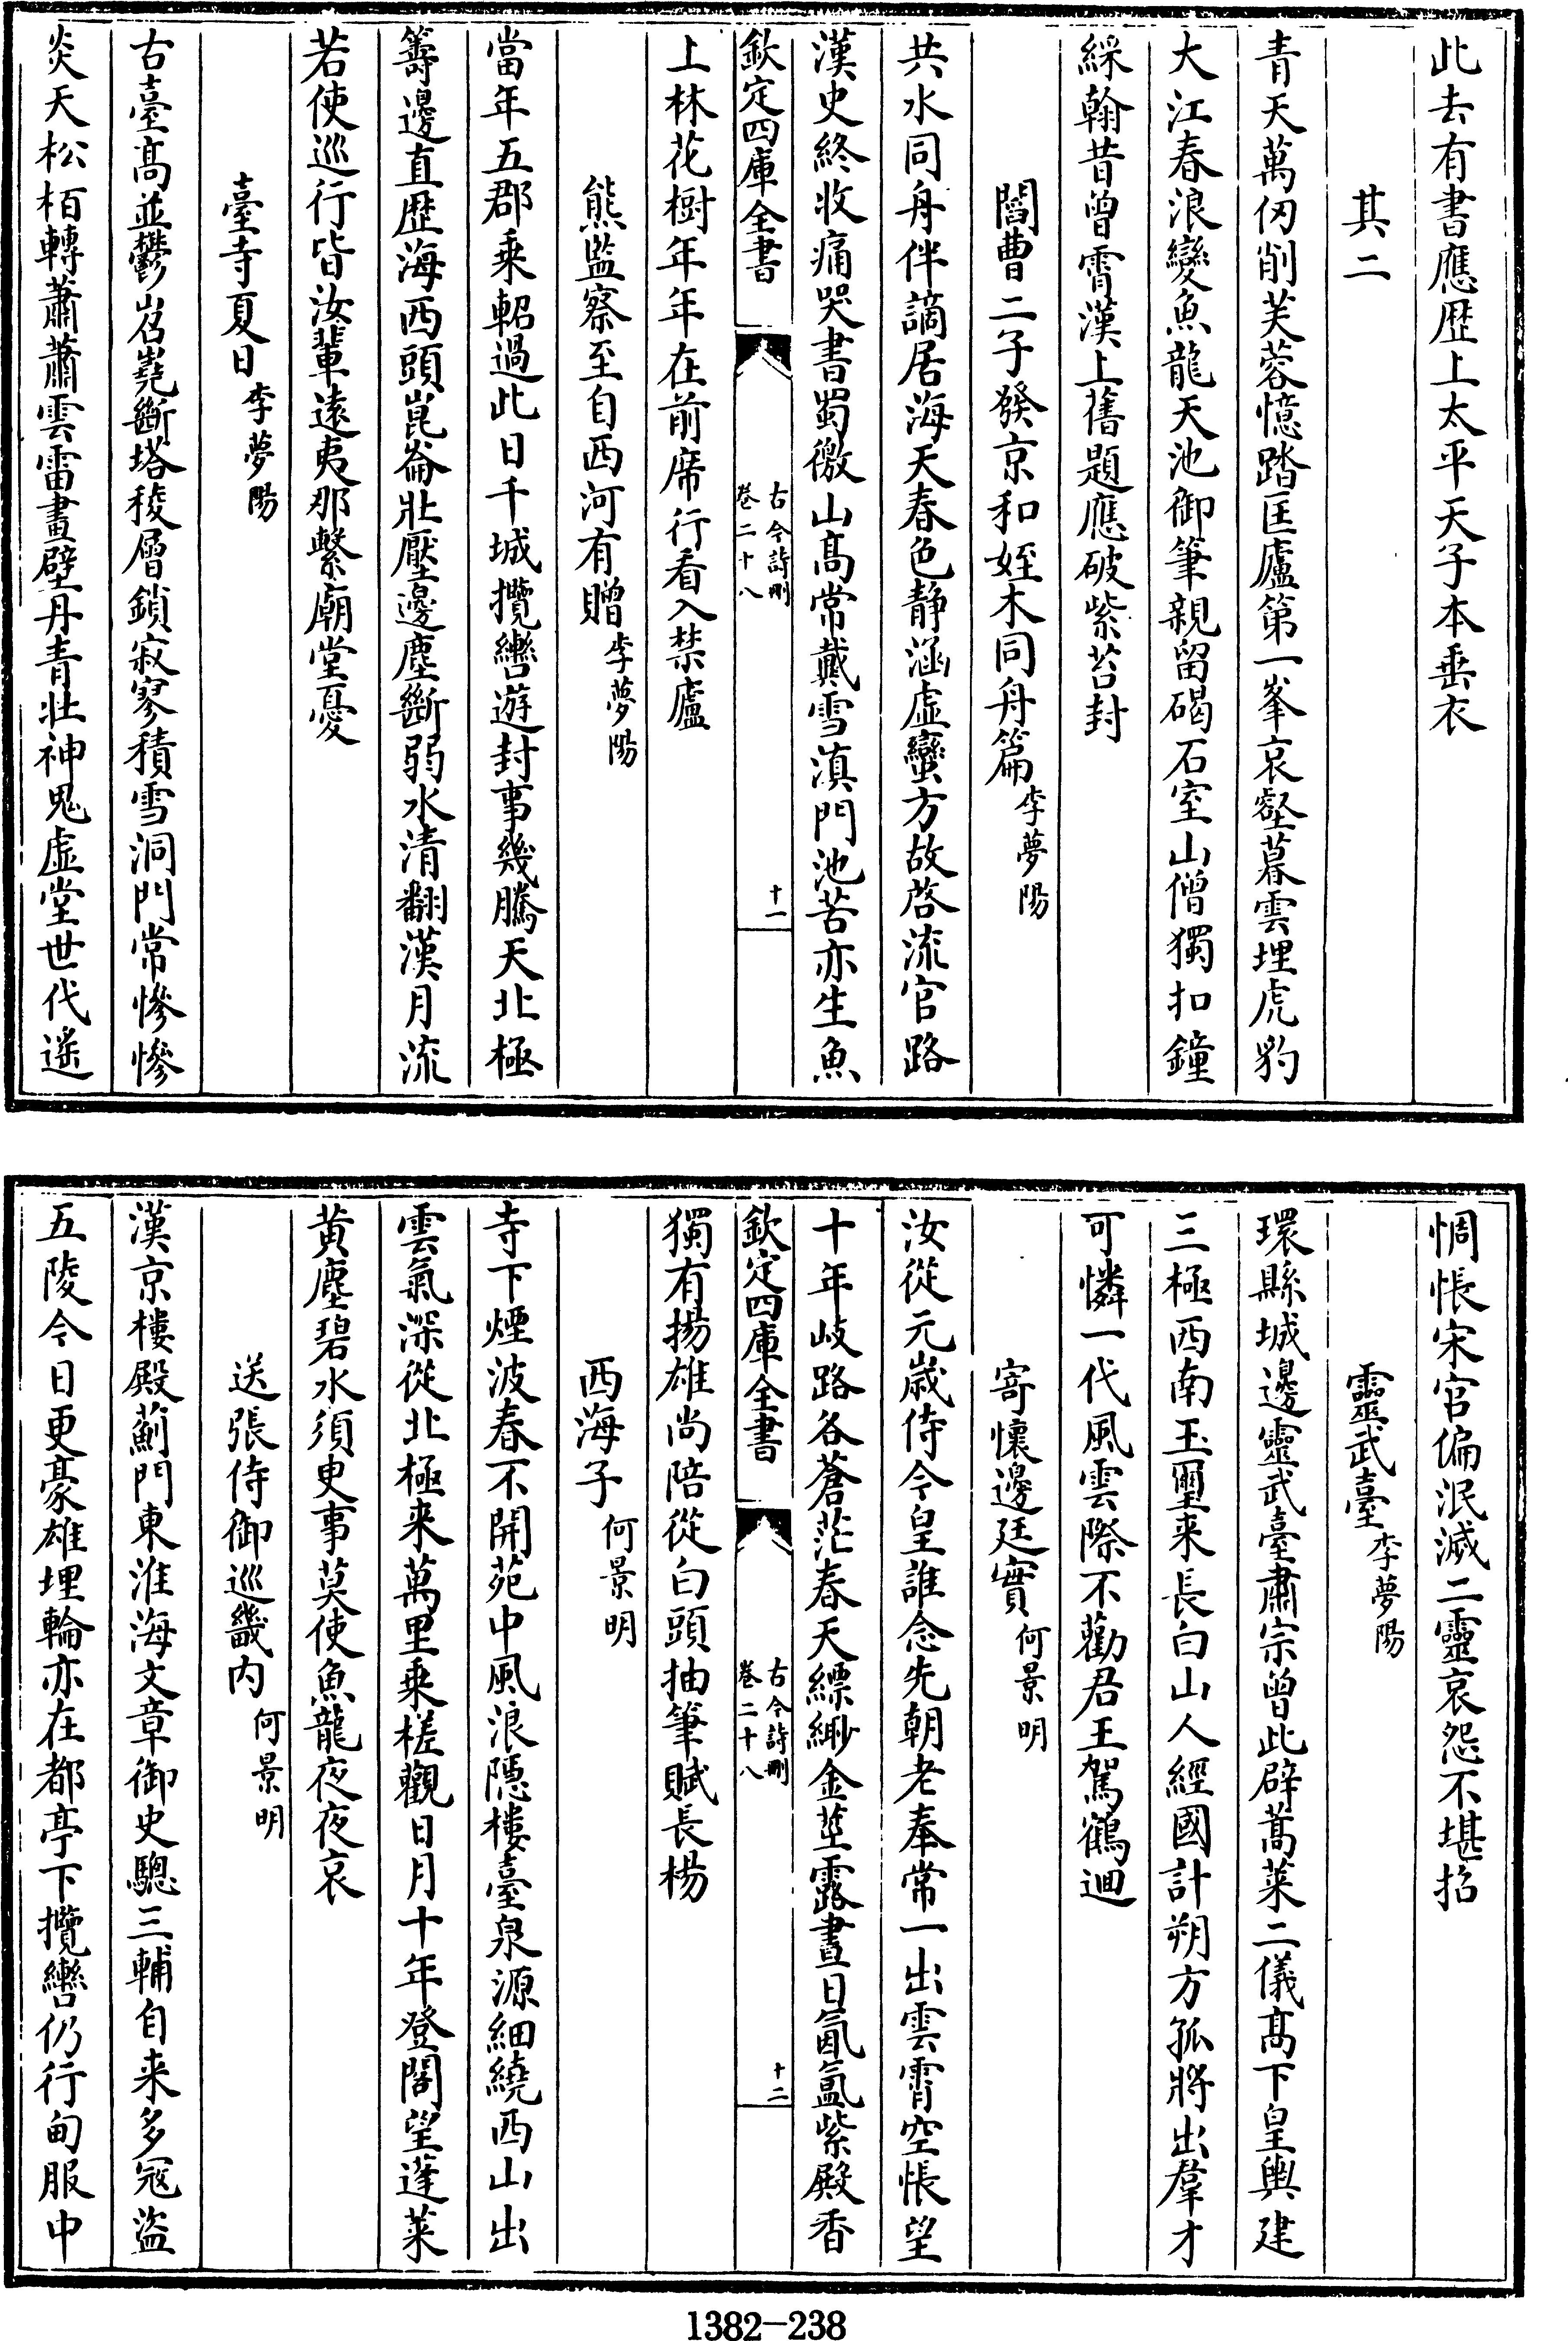 此去有書應歴上太平天子本垂衣
其二
青天萬仞削芙蓉憶踏匡廬第一峯哀壑暮雲埋虎豹
大江春浪變魚龍天池御筆親留碣石室山僧獨扣鐘
綵翰昔曾霄漢上舊題應破紫苔封
閻曹二子發京和姪木同舟篇李夢陽
共水同舟伴謫居海天春色静涵虚蠻方故啓流官路
漢史終收痛哭書蜀徼山髙常戴雪滇門池苦亦生魚
欽定四庫全書
古今詩刪
卷二十八
十一
上林花樹年年在前席行看入禁廬
熊監察至自西河有贈李夢陽
當年五郡乘軺過此日千城攬轡遊封事幾騰天北極
籌邊直歴海西頭崑崙壯壓邊塵斷弱水清翻漢月流
若使巡行皆汝輩逺夷那繫廟堂憂
臺寺夏日李夢陽
古臺髙並鬱岧嶤斷塔稜層鎖寂寥積雪洞門常慘慘
炎天松栢轉蕭蕭雲雷畫壁丹青壯神鬼虚堂世代遥
惆悵宋官偏泯滅二靈哀怨不堪招
靈武臺李夢陽
環縣城邊靈武臺肅宗曾此辟蒿萊二儀髙下皇輿建
三極西南玉璽来長白山人經國計朔方孤將出羣才
可憐一代風雲際不勸君王駕鶴迴
寄懷邊廷實何景明
汝從元歲侍今皇誰念先朝老奉常一出雲霄空悵望
十年岐路各蒼茫春天縹緲金莖露晝日氤氲紫殿香
欽定四庫全書
古今詩刪
卷二十八
十二
獨有揚雄尚陪從白頭抽筆賦長楊
西海子何景明
寺下煙波春不開苑中風浪隠樓臺泉源細繞西山出
雲氣深從北極来萬里乘槎觀日月十年登閣望蓬萊
黄塵碧水須臾事莫使魚龍夜夜哀
送張侍御巡畿内何景明
漢京樓殿薊門東淮海文章御史驄三輔自来多冦盗
五陵今日更豪雄埋輪亦在都亭下攬轡仍行甸服中
1382-238